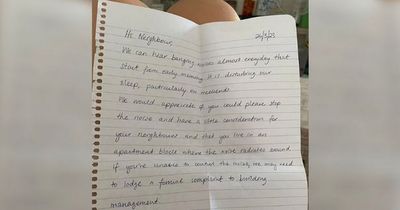 Hi Neighbour,
We can hear banging noises almost everyday that
start from early morning. It is disturbing our
sleep, particularly on weekends.
We would appreciate if you could please stop
the noise and have a little consideration for
your neighbours and that you live in an
apartment block where the noise radiates around.
If you're unable to control the noise, we may need
to lodge a formal complaint to building
management.